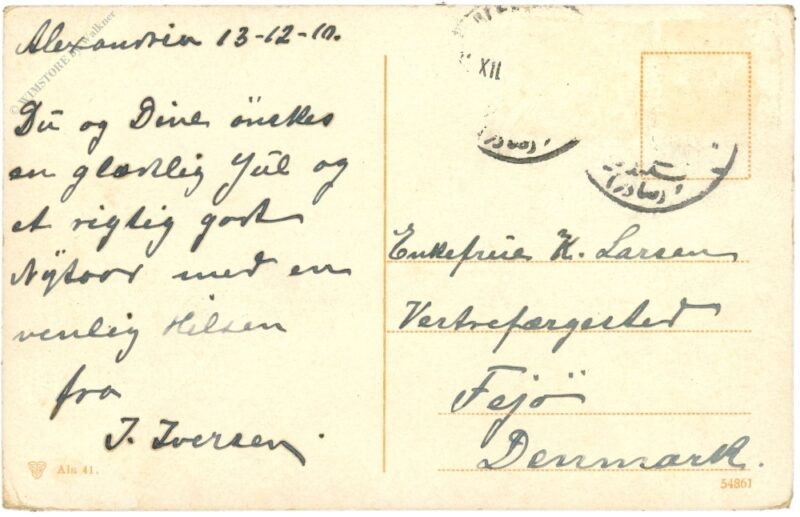 Alexandria 13-12-10.
Du og Dine önskes
en glædelig Jul og
et rigtig godt
Nytaar med en
venlig Hilsen
fra
J. Iversen.
XII
Enkefrue K. Larsen
Vestrefærgested
Fejö
Denmark.
Alx 41.
54861
© WIMSTORE by Walkner